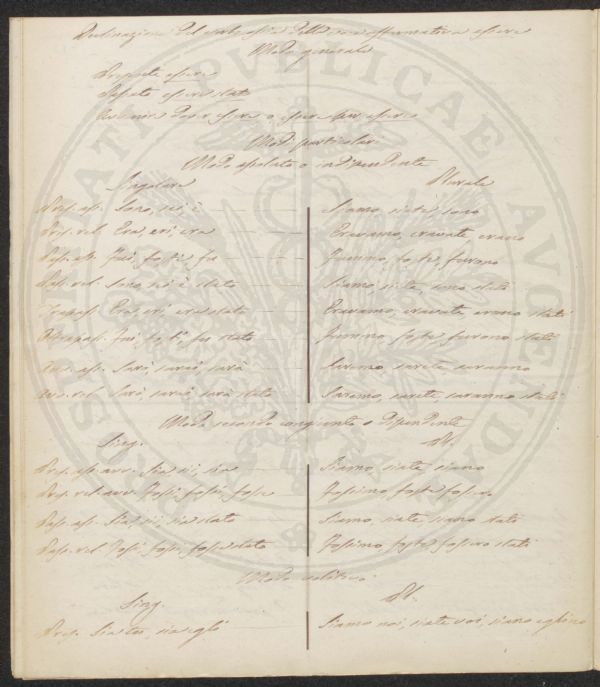 Declinazione del verbo essere affermativa essere
Modo generale
Presente essere
Passato essere stato
essere o essere per essere
Modi particolari
Modo assoluto o indipendente
Singolare Plurale
Pres. ass. Sono, sei è Siamo, siete, sono
Pres. rel. Era, eri, era Eravamo, eravate erano
Pass. ass. Fui, fosti fu Fummo, foste, furono
Pass. rel. sono, sei è stato Siamo siete, sono stati
Trapass. Era, eri, era stato Eravamo, eravate erano stati
Oltrepass. Fui, fosti, fu stato Fummo, foste furono stati
Avv. ass. Sarò, sarai, sarà Saremo, sarete, saranno
Avv. rel. Sarò, sarai, sarà stato Saremo, sarete, saranno stati
Modo secondo congiunto o Dipendente
Sing. Pl.
Pres. ass. avv. Sia sii, sia Siamo, siate, siano
Pres. rel. avv. Fossi, fossi, fosse Fossimo, foste fossero
Pass. ass. Sia, sii, sia stato Siamo, siate, siano stati
Pass. rel. Fossi, fossi, fosse stato Fossimo, foste, fossero stati
Modo
Sing. Pl.
Pres. Sia tu, sia egli Siamo noi, siate voi, siano eglino
PRO SPERITATI PUBLICAE AUGENDAE